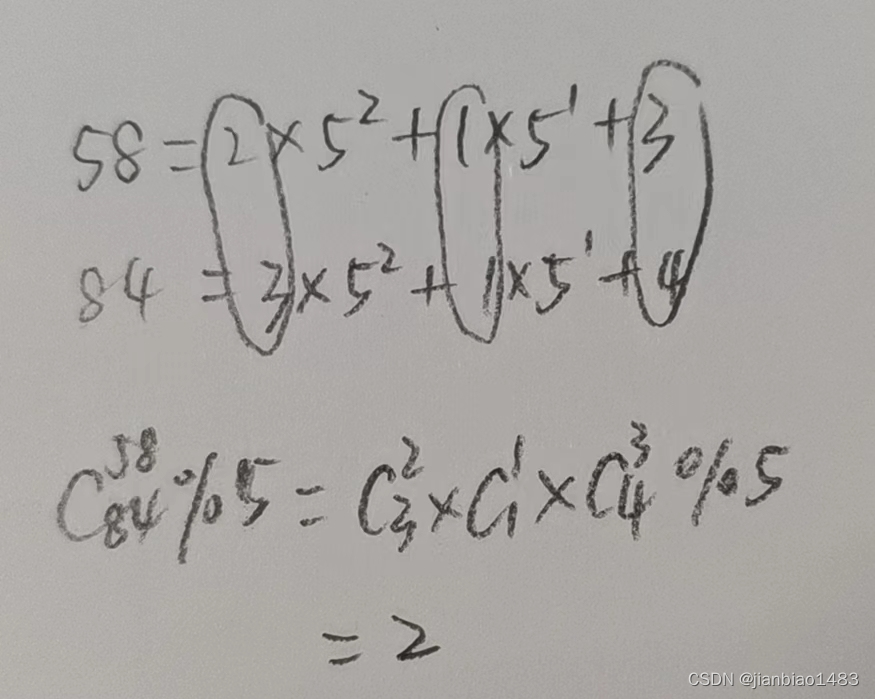 58 = 2 × 5² + 1 × 5¹ + 3
84 = 3 × 5² + 1 × 5¹ + 4
C₈₄⁵⁸ % 5 = C₃² × C₁¹ × C₄³ % 5
= 2
CSDN @jianbiao1483